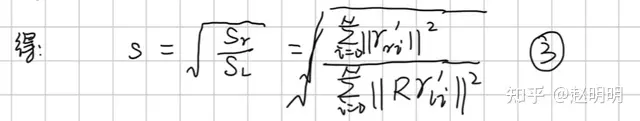 得: s = √(Sr/SL) = √(∑_{i=0}^{N} ||r'_{ri}||² / ∑_{i=0}^{N} ||R r'_{li}||²) ③
知乎 @赵明明